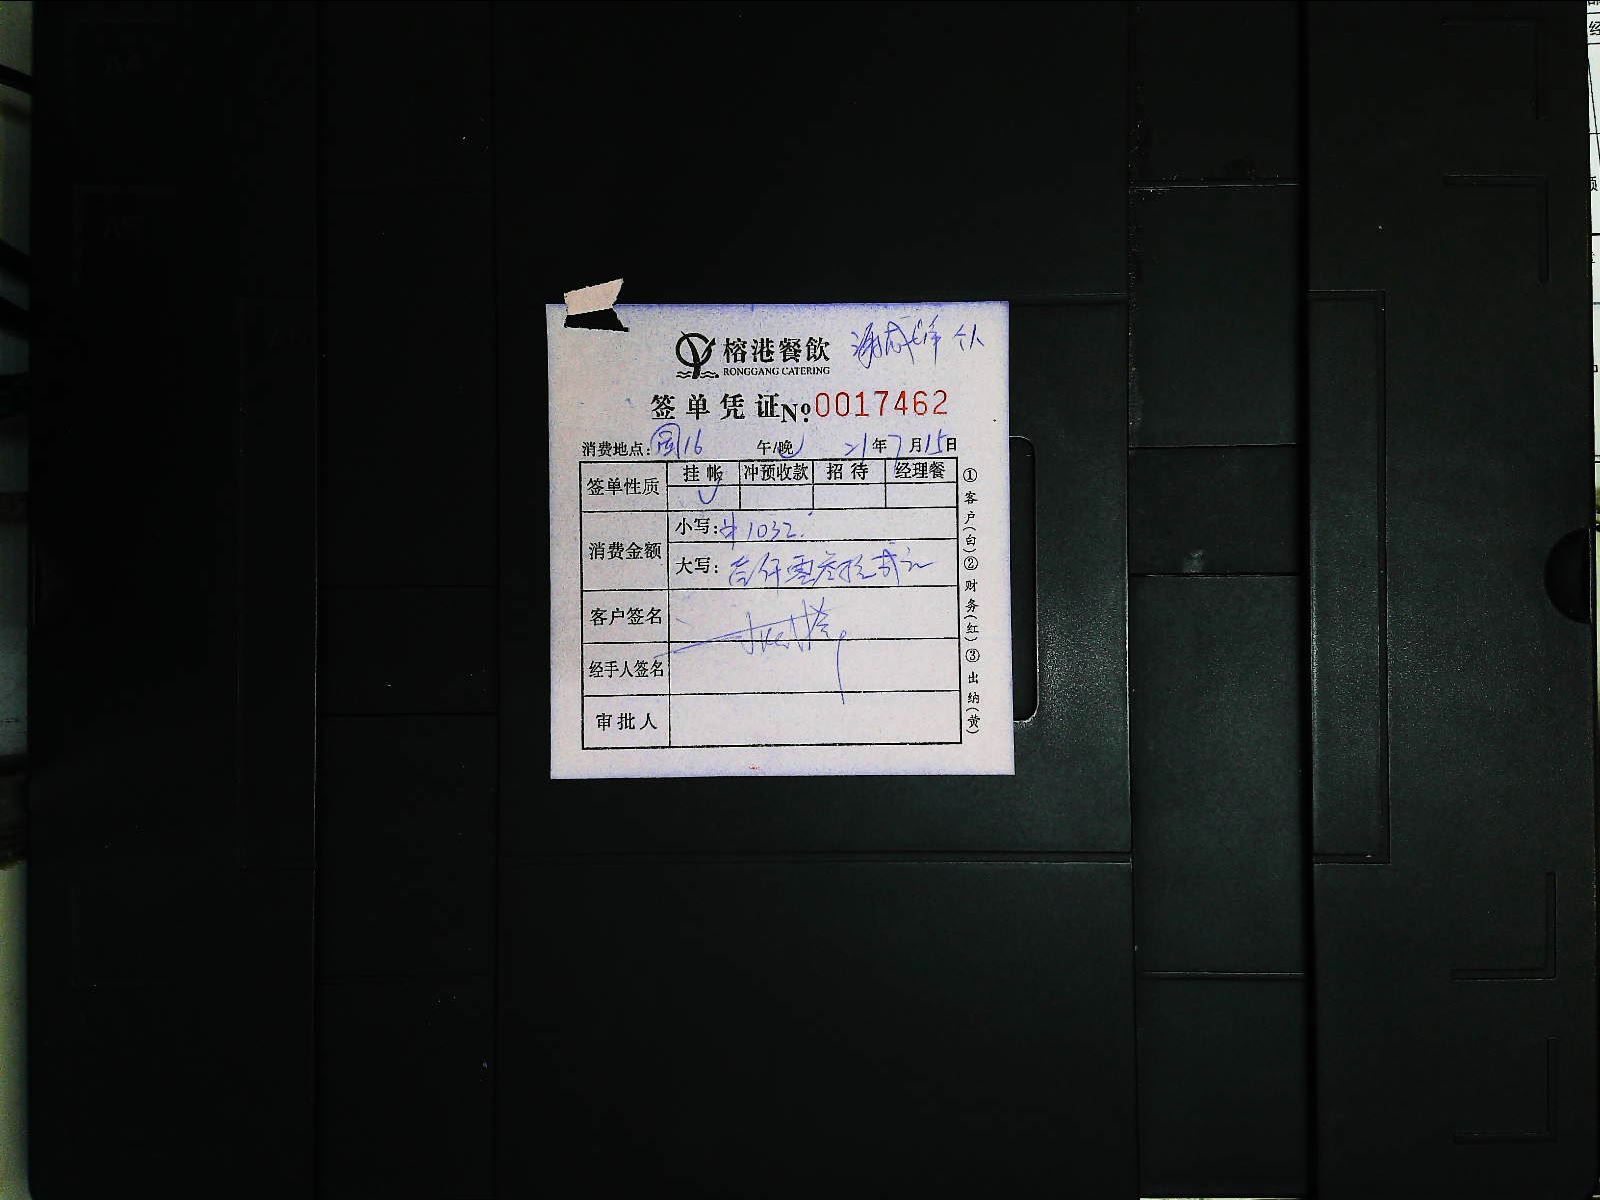 榕港餐飲 个人
RONGGANG CATERING
签单凭证 No. 0017462
消费地点: 16 午/晚 21年7月15日
签单性质 挂帐 冲预收款 招待 经理餐
消费金额 小写: ¥1032.
大写: 壹仟零叁拾贰元
客户签名
经手人签名
审批人
①客户(白)②财务(红)③出纳(黄)